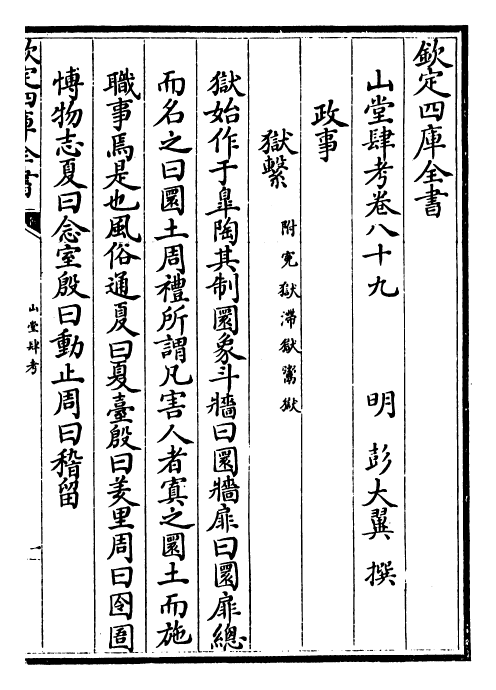 欽定四庫全書
山堂肆考卷八十九
明 彭大翼 撰
政事
獄繫 附寃獄滯獄鬻獄
獄始作于臯陶其制圜象斗牆曰圜牆扉曰圜扉總
而名之曰圜土周禮所謂凡害人者寘之圜土而施
職事焉是也風俗通夏曰夏臺殷曰羑里周曰囹圄
博物志夏曰念室殷曰動止周曰稽留
欽定四庫全書
山堂肆考
一